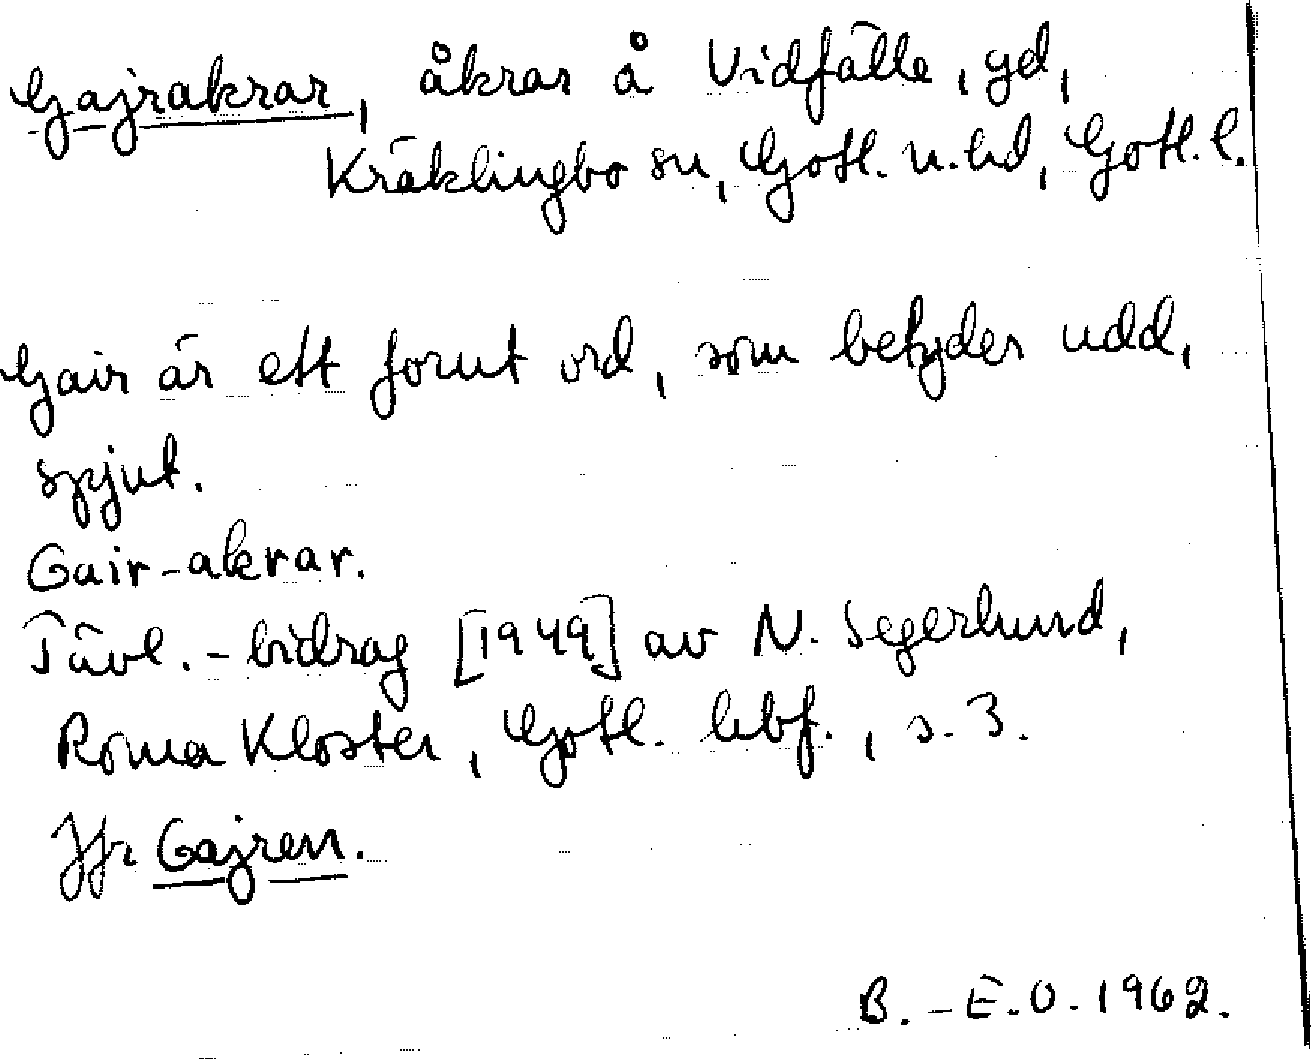 Gajrakrar, åkrar å Vidfälle, gd,
Kräklingbo sn, Gotl. n. hd, Gotl. l.
Gair är ett fornt ord, som betyder udd,
spjut.
Gair-akrar.
Tävl.-bidrag [1949] av N. Segerlund,
Roma Kloster, Gotl. hbf., s. 3.
Jfr Gajren.
B.-E.O. 1962.